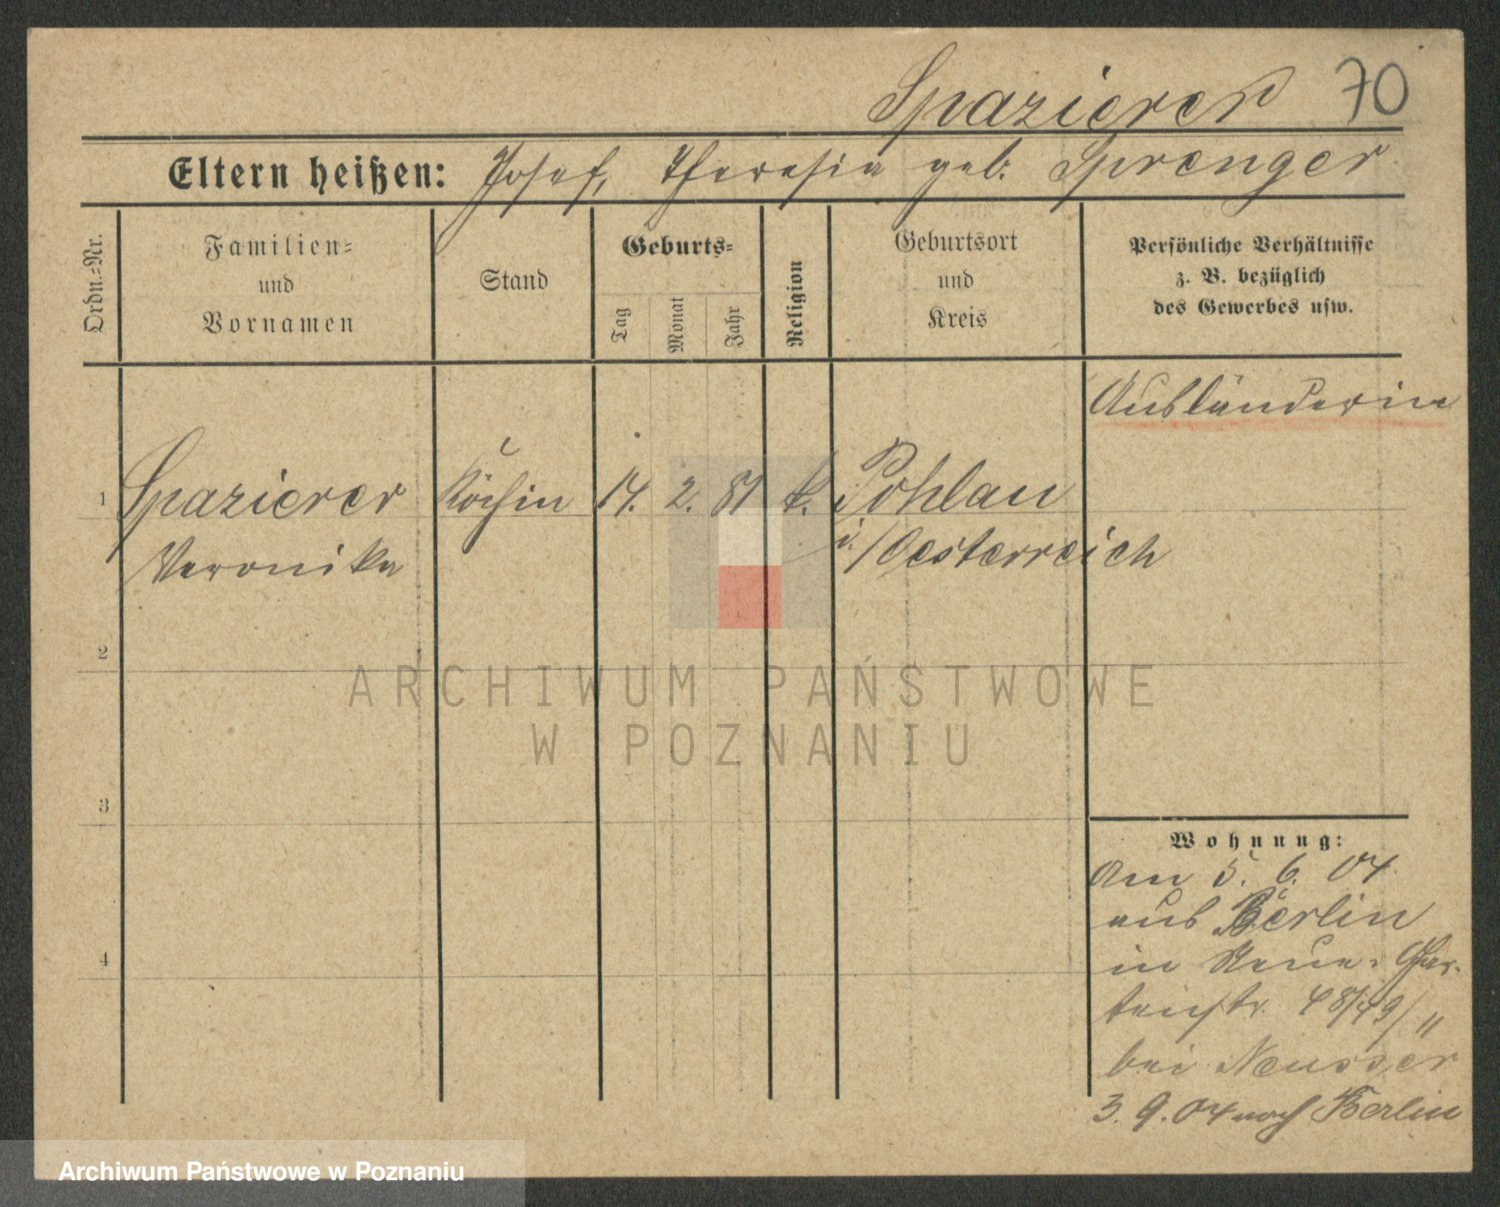 Spazierer 70
Eltern heißen: Josef, Theresia geb. Sprenger
Ordn.=Nr.
Familien=
und
Vornamen
Stand
Geburts=
Tag
Monat
Jahr
Religion
Geburtsort
und
Kreis
Persönliche Verhältnisse
z. B. bezüglich
des Gewerbes usw.
Ausländerin
1 Spazierer Köchin 14. 2. 81 k. Pohlau
Veronika i./Oesterreich
2
ARCHIWUM PAŃSTWOWE
W POZNANIU
3
Wohnung:
Am 5. 6. 04
aus Berlin
in Neue= Gar-
tenstr. 48/49/II
bei Neusser
3. 9. 04 nach Berlin
4
Archiwum Państwowe w Poznaniu